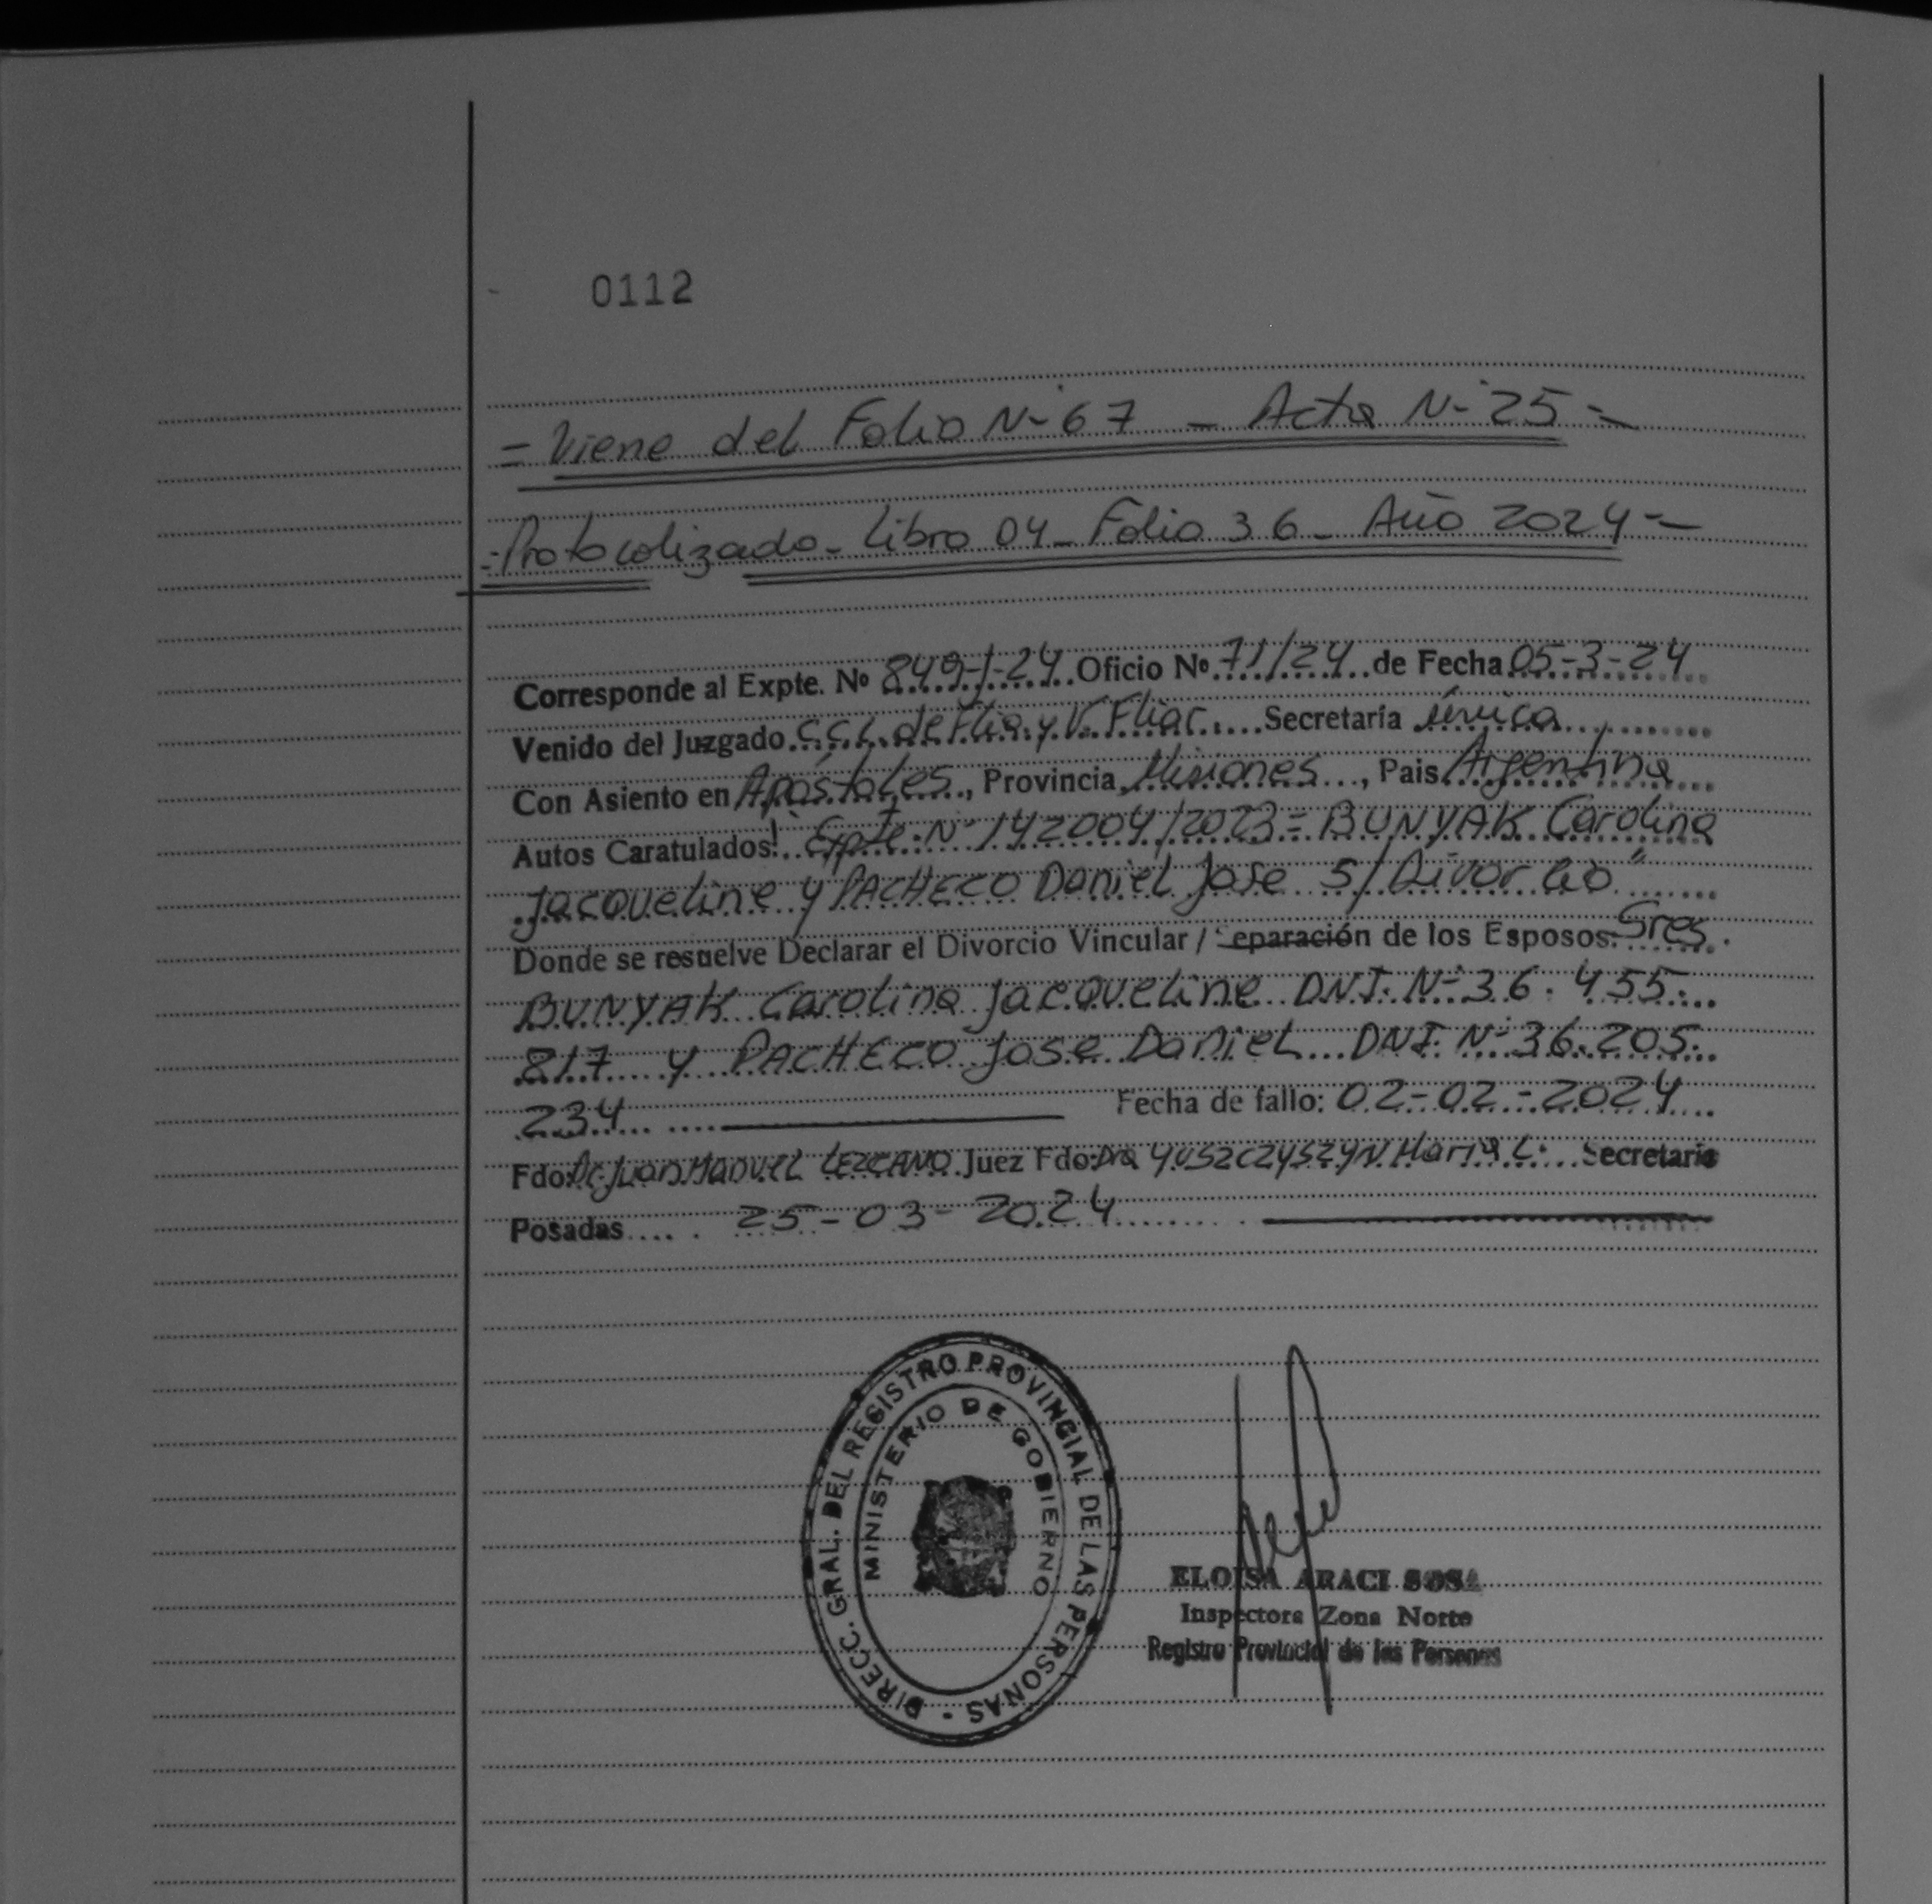 0112
= Viene del Folio N° 67 - Acta N° 25 =
=Protocolizado - Libro 04 - Folio 36 - Año 2024 =
Corresponde al Expte. Nº 849-J-24 Oficio Nº 71/24 de Fecha 05-3-24
Venido del Juzgado C.C.L. de Flia. y V. Fliar. Secretaria única
Con Asiento en Apóstoles, Provincia Misiones, Pais Argentina
Autos Caratulados: Expte. N° 142004/2023 = BUNYAK Carolina
Jacqueline y PACHECO Daniel Jose S/ Divorcio"
Donde se resuelve Declarar el Divorcio Vincular / Separación de los Esposos: Sres.
BUNYAK Carolina Jacqueline DNI. N° 36.455.
817 y PACHECO Jose Daniel DNI. N° 36.205.
234 Fecha de fallo: 02-02-2024
Fdo: Dr. Juan Manuel LEZCANO Juez Fdo: Dra YUSZCZYSZYN Maria L. Secretario
Posadas 25-03-2024
DIRECC. GRAL. DEL REGISTRO PROVINCIAL DE LAS PERSONAS -
MINISTERIO DE GOBIERNO
ELOISA ARACI SOSA
Inspectora Zona Norte
Registro Provincial de las Personas